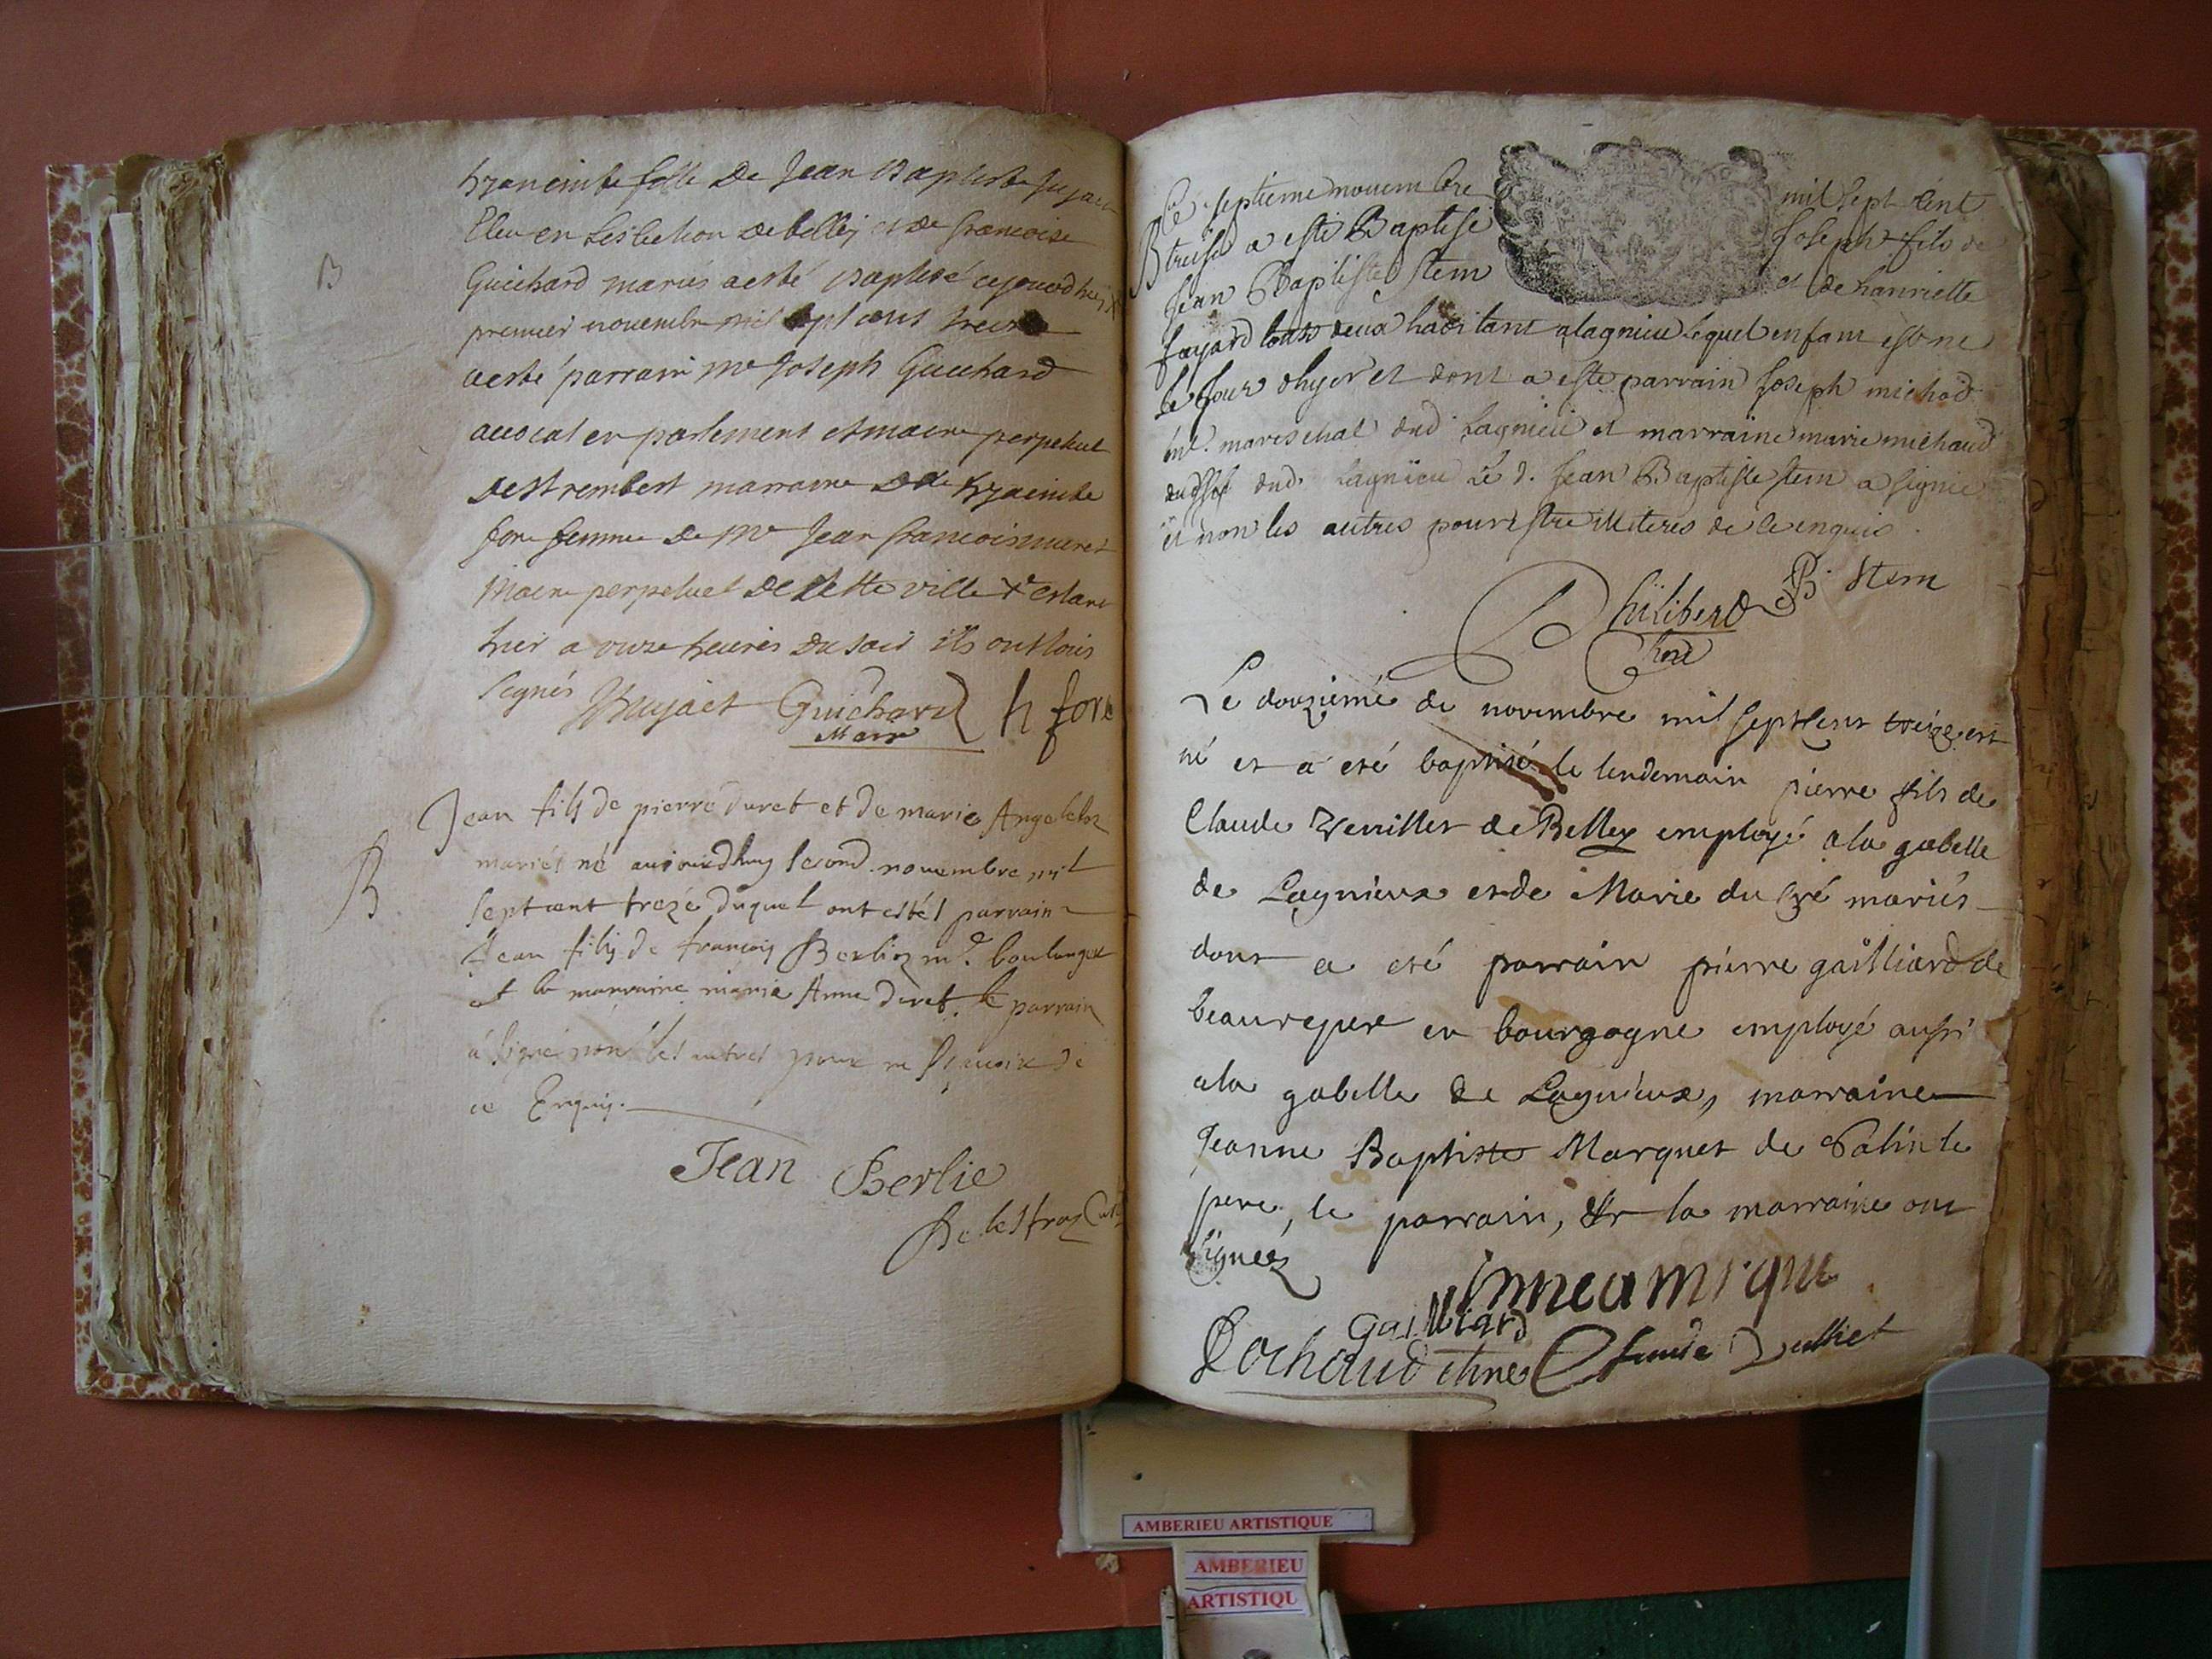 B
hyacinthe fille de Jean Baptiste
Eleu en Leslection de belley et de francoise
Guichard mariés a esté baptisé cejourdhuy
premier novembre mil sept cent treize
a esté parrain mr Joseph Guichard
avocat en parlement et maire perpetuel
de st rembert marraine dlle hyacinthe
fore femme de mr Jean francois
Maire perpetuel de cette ville
hier a onze heures du soir ils ont tous
signés
Guichard h fore
Marr
B
Jean fils de pierre duret et de marie
mariés né aujourdhuy second novembre mil
sept cent treze duquel ont estés parrain
Jean fils de françois Berlioz md boulanger
et la marraine marie Anne duret. le parrain
a signé non les autres pour ne sçavoir de
ce Enquis.
Jean Berlie
B
Ce septieme novembre mil sept cent
treise a esté Baptisé Joseph fils de
Jean Baptiste Stem et de hanriette
fayard tous deux habitant a lagnieu lequel enfant est ne
le jour dhyer et dont a esté parrain Joseph michod
mareschal dud Lagnieu et marraine marie michaud
dud. Lagnieu Le d. Jean Baptiste Stem a signé
et non les autres pour estre illiteres de ce enquis
B Stem
Philibert
Le douzieme de novembre mil sept cent treize est
né et a eté baptisé le lendemain pierre fils de
Claude de Belley employé a la gabelle
de Lagnieux et de Marie du pré mariés
dont a eté parrain pierre gailliard de
en bourgogne employé aussi
a la gabelle de Lagnieux, marraine
Jeanne Baptiste Marquet de
pere, le parrain, et la marraine ont
signéz
gailliard
Claude